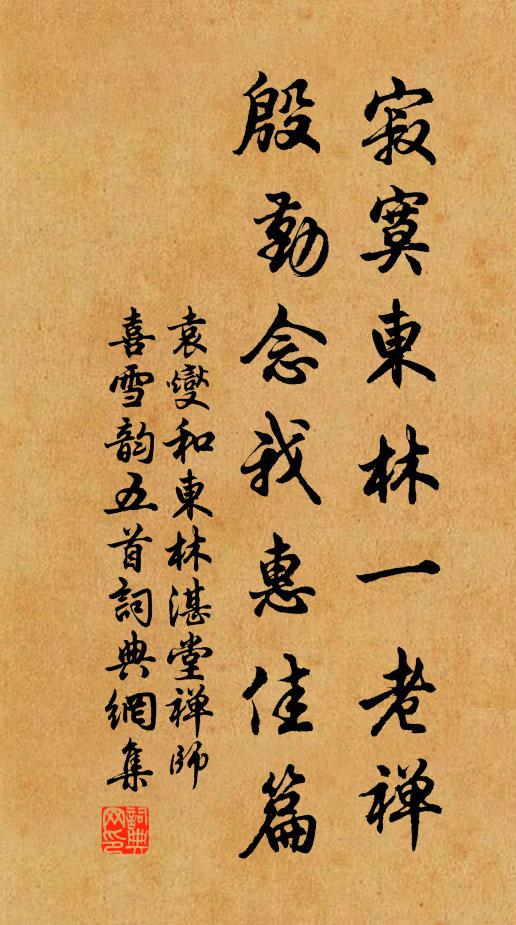 寂寞東林一老禅
殷勤念我惠佳篇
袁燮和東林湛堂禅師
喜雪韵五首詞典網集
詞典网印